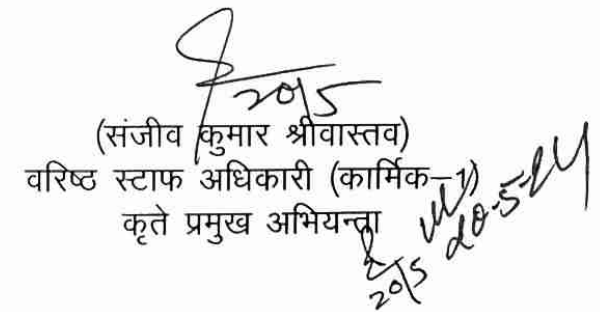 20/5
(संजीव कुमार श्रीवास्तव)
वरिष्ठ स्टाफ अधिकारी (कार्मिक-1)
कृते प्रमुख अभियन्ता
20/5
20-5-24